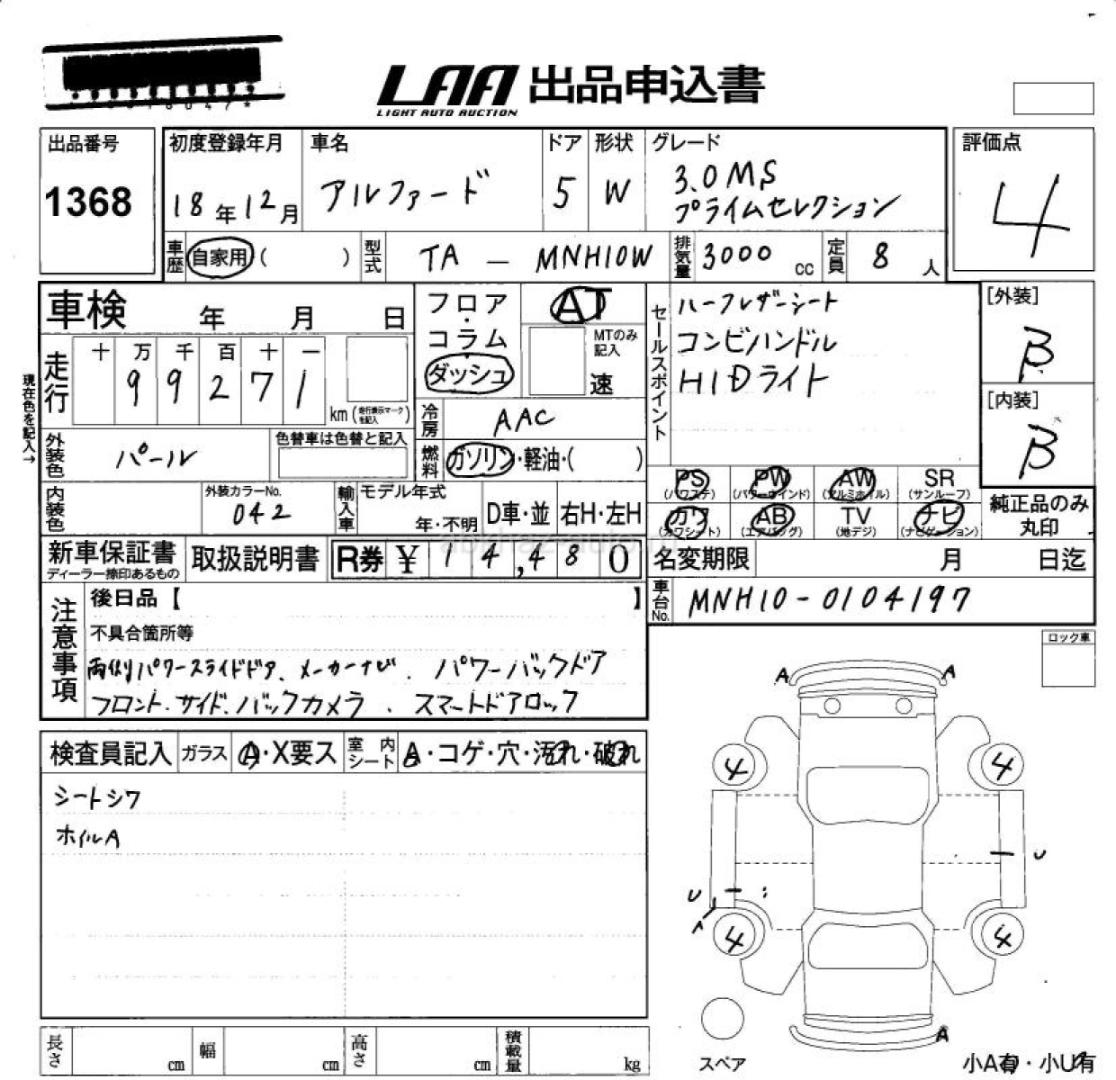 LAA 出品申込書
LIGHT AUTO AUCTION
出品番号 初度登録年月 車名 ドア 形状 グレード 評価点
1368 18年12月 アルファード 5 W 3.0MS
プライムセレクション 4
車歴 自家用( ) 型式 TA - MNH10W 排気量 3000 cc 定員 8 人
車検 年 月 日 フロア・コラム・ダッシュ AT セールスポイント ハーフレザーシート [外装]
MTのみ記入 速 コンビハンドル B
HIDライト
走行 十 万 千 百 十 一
99271 km (走行表示マークを記入)
[内装]
B
現在色を記入→
冷房 AAC
外装色 パール 色替車は色替と記入 燃料 ガソリン・軽油・( )
PS PW AW SR
(パワステ) (パワーウインド) (アルミホイル) (サンルーフ)
カワ AB TV ナビ
(カワシート) (エアバッグ) (地デジ) (ナビゲーション)
純正品のみ
丸印
内装色 外装カラーNo. 042 輸入車 モデル年式 年・不明 D車・並 右H・左H
新車保証書 取扱説明書 R券 ¥ 14,480 名変期限 月 日迄
ディーラー捺印あるもの
車台No. MNH10-0104197
注意事項 後日品【 】
不具合箇所等
両側パワースライドドア、メーカーナビ、パワーバックドア
フロント・サイド・バックカメラ、スマートドアロック
ロック車
検査員記入 ガラス A・X要ス 室内シート A・コゲ・穴・汚れ・破れ
シートシワ
ホイルA
A A
4 4
U U
A
4 4
A
スペア
小A有・小U有
長さ cm 幅 cm 高さ cm 積載量 kg